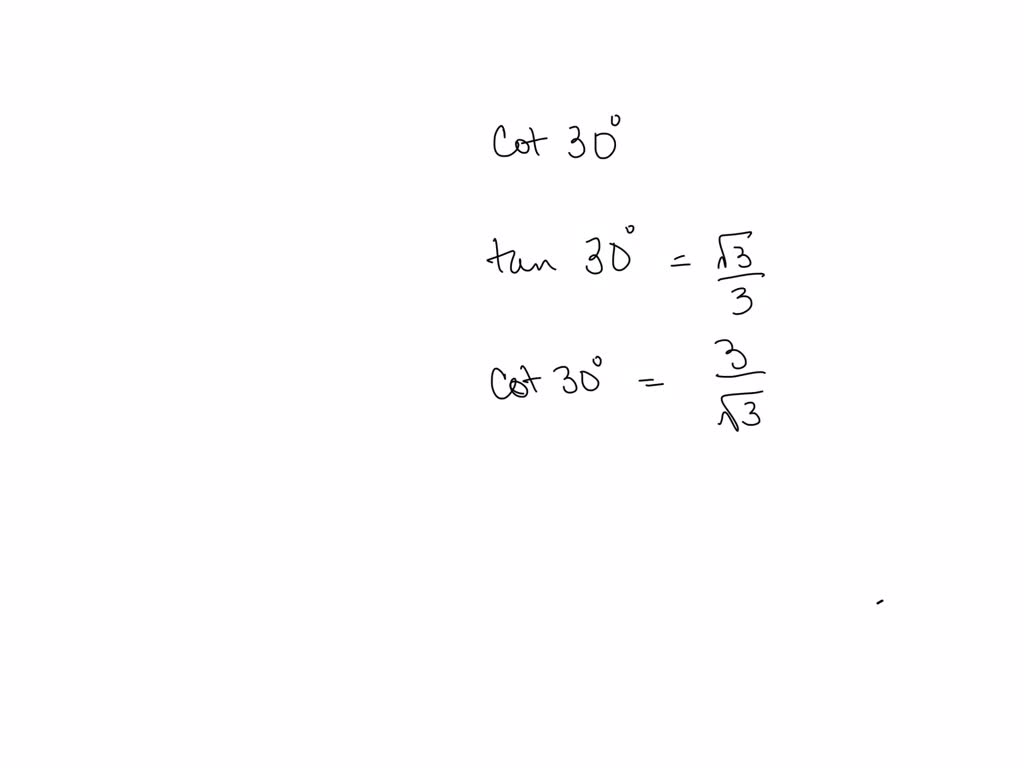 cot 30°
tan 30° = √3/3
cot 30° = 3/√3